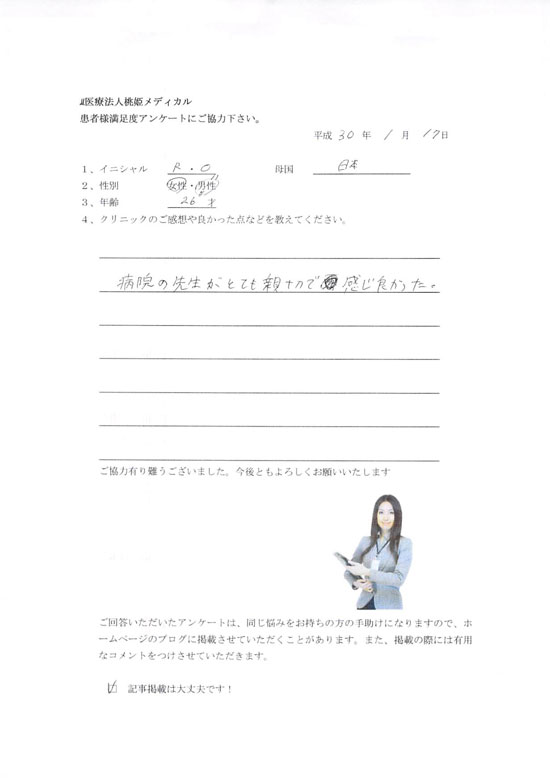 医療法人桃姫メディカル
患者様満足度アンケートにご協力下さい。
平成 30 年 1 月 17日
1、イニシャル R.O 母国 日本
2、性別 女性・男性
3、年齢 26才
4、クリニックのご感想や良かった点などを教えてください。
病院の先生がとても親切で感じ良かった。
ご協力有り難うございました。今後ともよろしくお願いいたします
ご回答いただいたアンケートは、同じ悩みをお持ちの方の手助けになりますので、ホ
ームページのブログに掲載させていただくことがあります。また、掲載の際には有用
なコメントをつけさせていただきます。
記事掲載は大丈夫です！